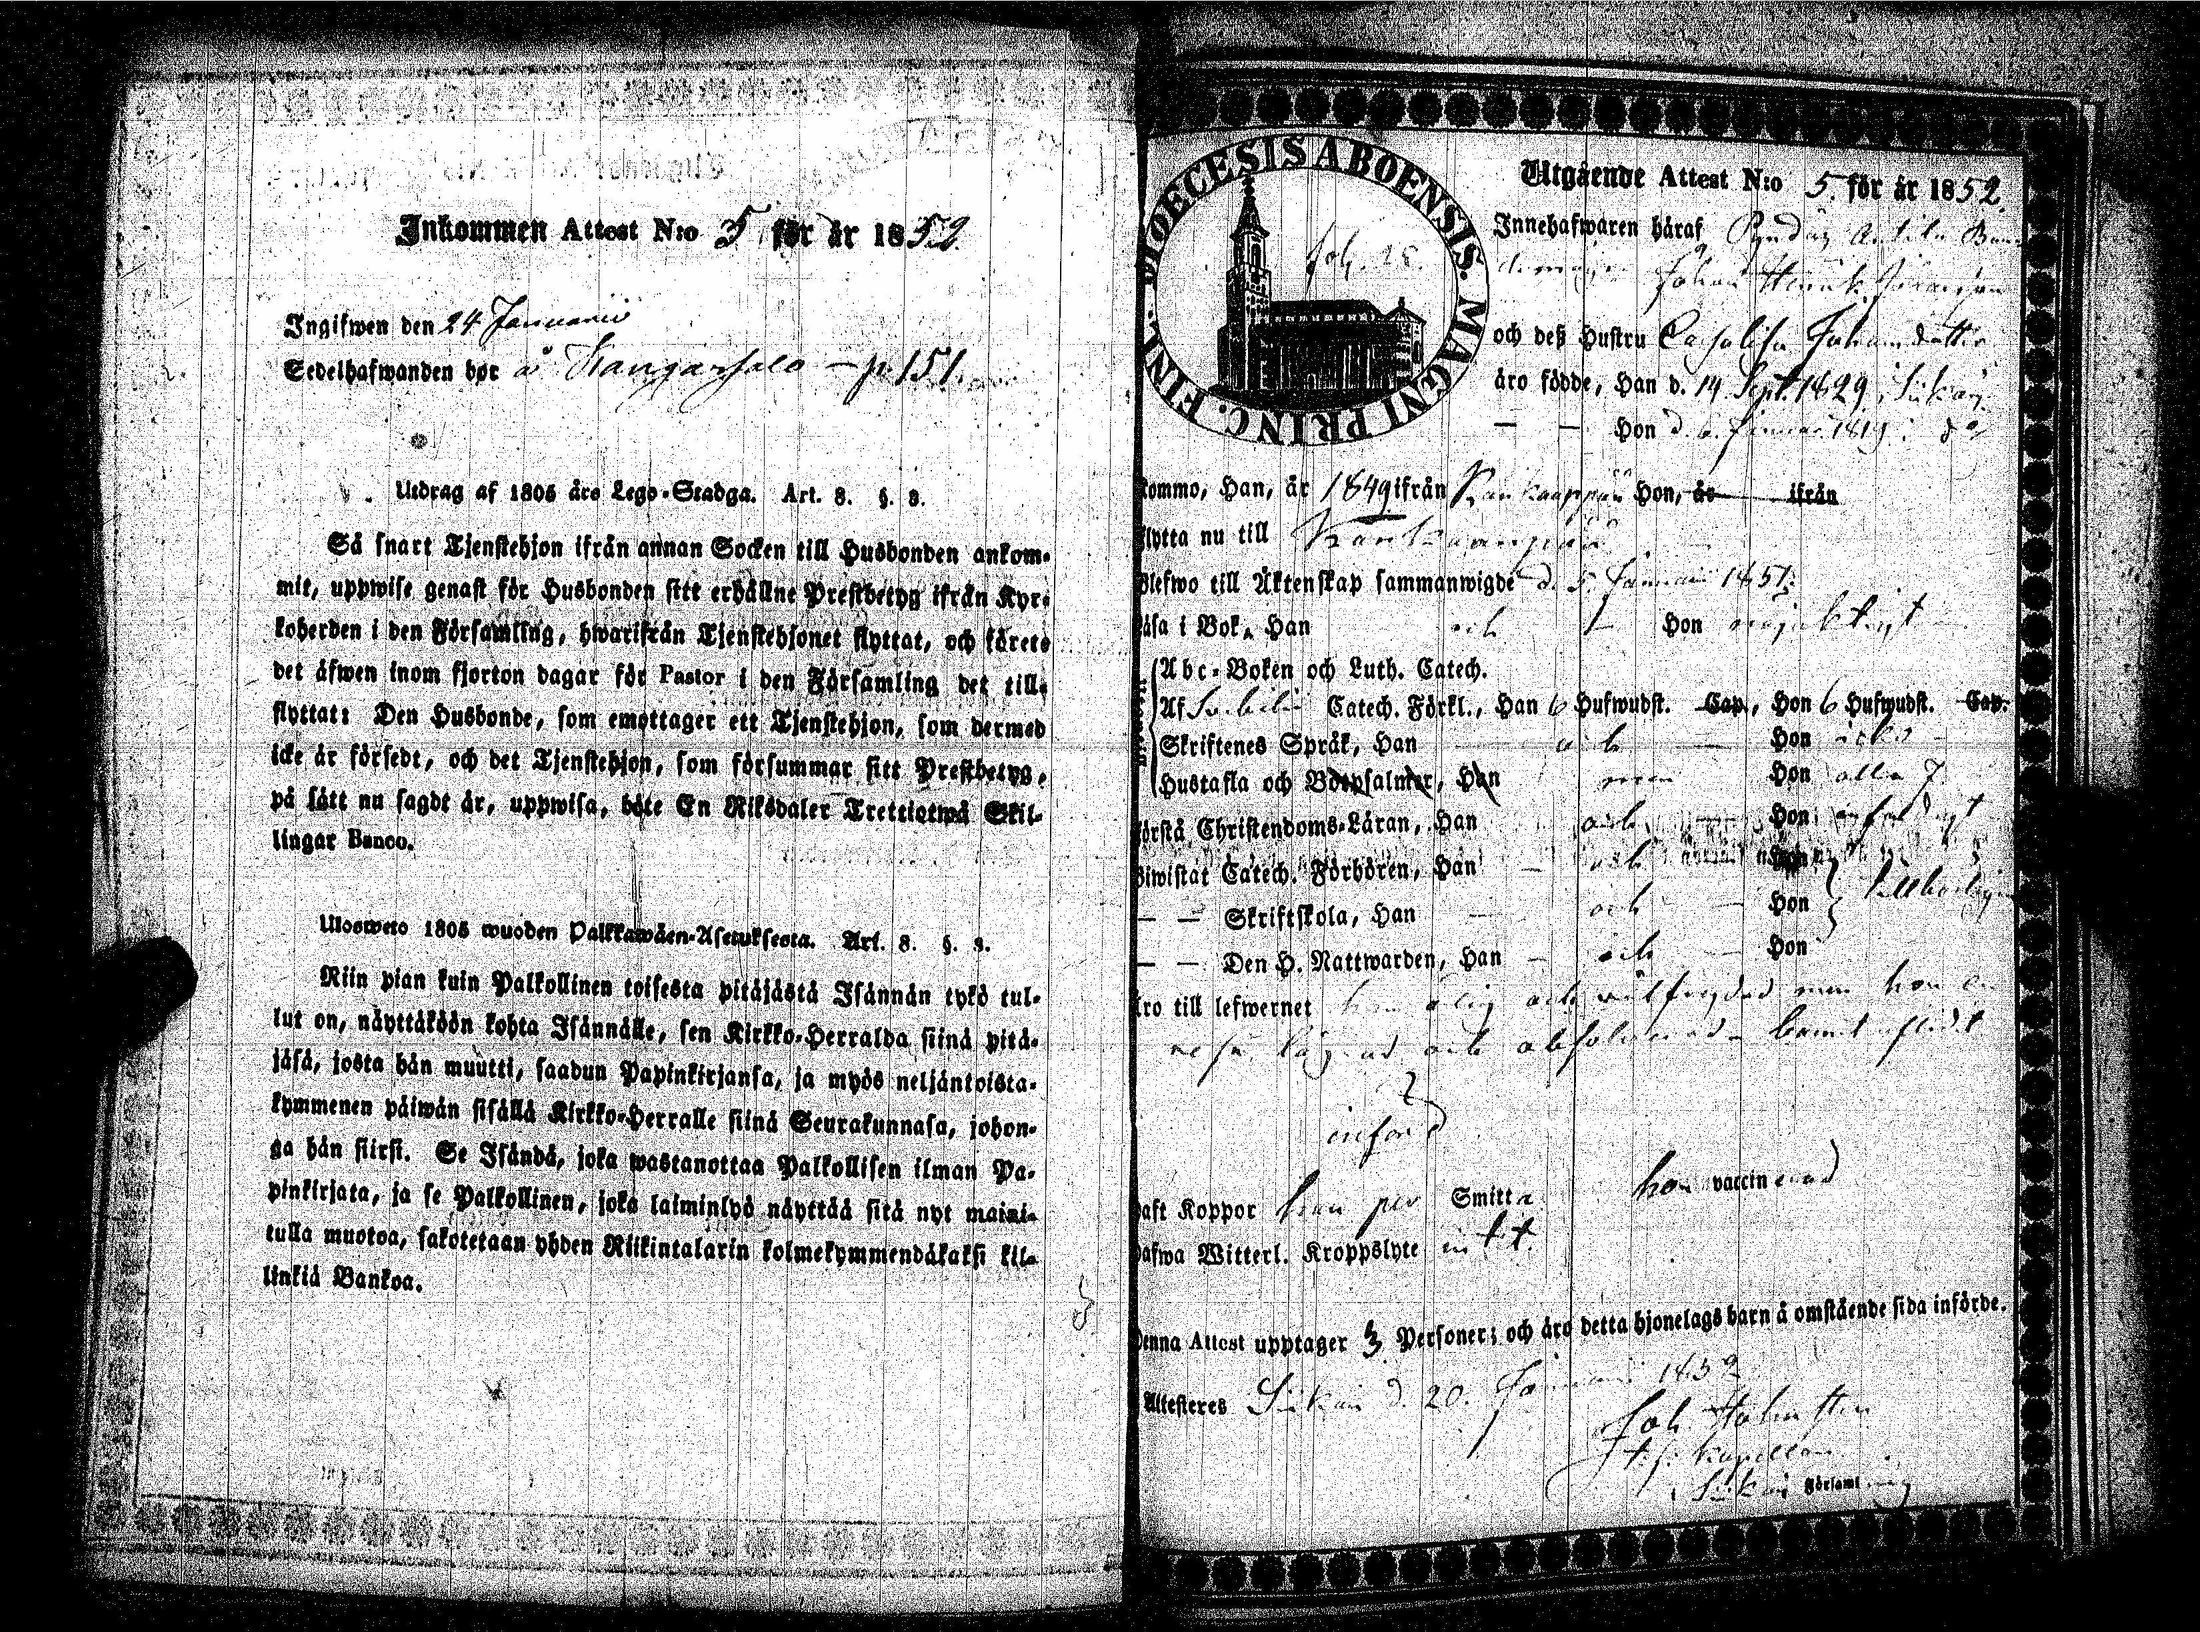 Inkommen Attest N:o 5 för år 1852.
Ingifwen den 24 Januarii
Sedelhafwanden bor å Kangarsalo – p. 151.
Utdrag af 1805 års Lego-Stadga. Art. 8. §. 8.
Så snart Tjenstehjon ifrån annan Socken till Husbonden ankom-
mit, uppwise genast för Husbonden sitt erhållne Prestbetyg ifrån Kyr-
koherden i den Församling, hwarifrån Tjenstehjonet flyttat, och förete
det äfwen inom fjorton dagar för Pastor i den Församling det till-
flyttat: Den Husbonde, som emottager ett Tjenstehjon, som dermed
icke är försedt, och det Tjenstehjon, som försummar sitt Prestbetyg,
på sätt nu sagdt är, uppwisa, böte En Riksdaler Trettiotwå Skil-
lingar Banco.
Ulosweto 1805 wuoden Palkkawäen-Asetuksesta. Art. 8. §. 8.
Niin pian kuin Palkollinen toisesta pitäjästä Isännän tykö tul-
lut on, näyttäköön kohta Isännälle, sen Kirkko-Herralda siinä pitä-
jäsä, josta hän muutti, saadun Papinkirjansa, ja myös neljäntoista-
kymmenen päiwän sisällä Kirkko-Herralle siinä Seurakunnasa, johon-
ga hän siirsi. Se Isändä, joka wastanottaa Palkollisen ilman Pa-
pinkirjata, ja se Palkollinen, joka laiminlyö näyttää sitä nyt maini-
tulla muotoa, sakotetaan yhden Riikintalarin kolmekymmendäkaksi kil-
linkiä Bankoa.
DIOECESIS ABOENSIS. MAGNI PRINC. FINL.
Utgående Attest N:o 5 för år 1852.
Innehafwaren häraf
Johan Henrik
och deß Hustru Johansdotter
äro födde, Han d. 14 Sept. 1829 i
— — Hon d. 6 Januari 1819 i d:o
kommo, Han, år 1849 ifrån Kankaanpää Hon, år ifrån
flytta nu till Kankaanpää
Blefwo till Äktenskap sammanwigde d. 5 Januari 1851.
Läsa i Bok, Han och Hon
Abc-Boken och Luth. Catech.
Af Svebilii Catech. Förkl., Han 6 Hufwudst. Cap., Hon 6 Hufwudst. Cap.
Skriftenes Språk, Han och — Hon
Hustafla och Botpsalmer, Han men Hon alla 7
Förstå Christendoms-Läran, Han och — Hon
Biwistat Catech. Förhören, Han — och Hon
— — Skriftskola, Han — och — Hon
— — Den H. Nattwarden, Han — och — Hon
äro till lefwernet han ärlig och wälfrejdad men hon
och
införd
Haft Koppor han per Smitta hon vaccinerad
Hafwa Witterl. Kroppslyte intet.
Denna Attest upptager 3 Personer; och äro detta hjonelags barn å omstående sida införde.
Attesteres d. 20. Januari 1852
Joh.
Församling